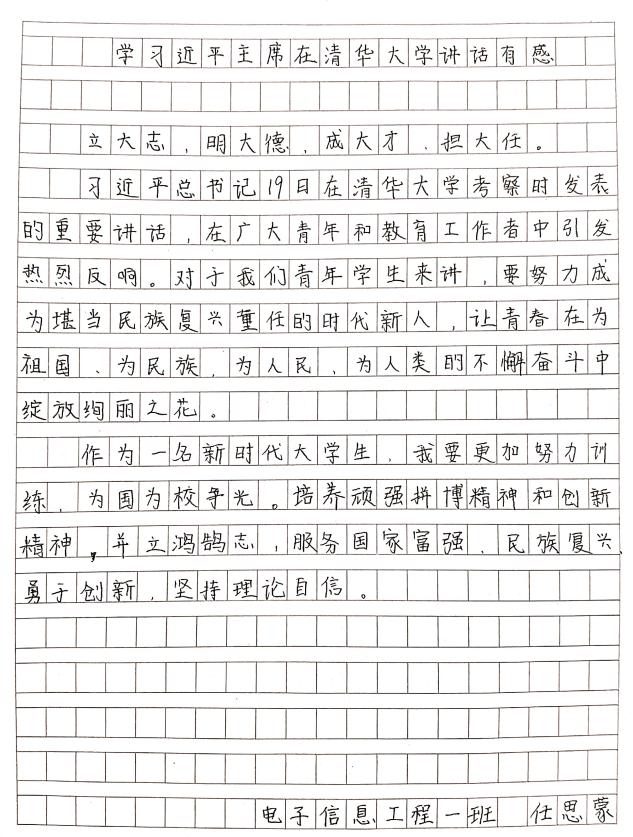 学习近平主席在清华大学讲话有感
立大志，明大德，成大才，担大任。
习近平总书记19日在清华大学考察时发表
的重要讲话，在广大青年和教育工作者中引发
热烈反响。对于我们青年学生来讲，要努力成
为堪当民族复兴重任的时代新人，让青春在为
祖国、为民族，为人民、为人类的不懈奋斗中
绽放绚丽之花。
作为一名新时代大学生，我要更加努力训
练，为国为校争光。培养顽强拼博精神和创新
精神，并立鸿鹄志，服务国家富强、民族复兴、
勇于创新，坚持理论自信。
电子信息工程一班 任思蒙